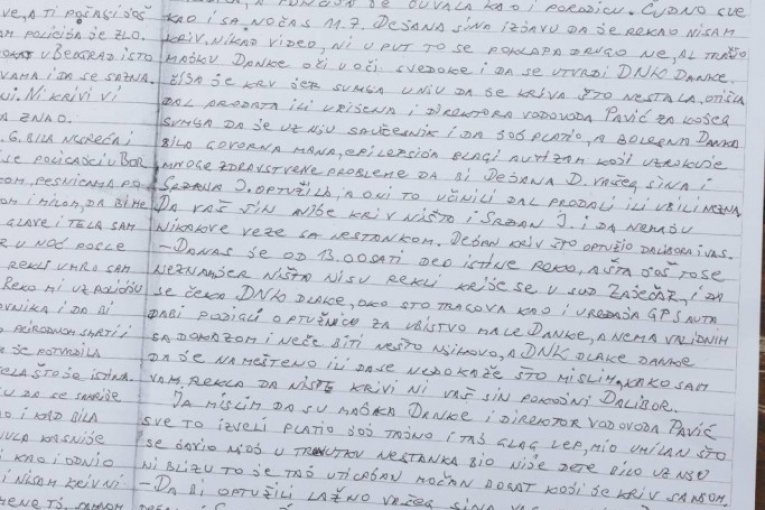 VE, A TI POČAŠI JOŠ
AM POLICIJA JE ZLO.
U BEOGRAD ISTO
VAMA I DA SE SAZNA.
NI. NI KRIVI VI
A ZNAO.
G. BILA NESREĆA I
SE POLICAJCI U BOR
OM, PESNICAMA PO
OM I MILOM, DA BI ME
GLAVE I TELA SAM
R U NOĆ POSLE
REKLI UMRO SAM
REKO MI UZ POLICIJU
OVNIKA I DA BI
PRIRODNOM SMRTI I
JE POTVRDILA
TELA ŠTO JE ISTINA.
U DA SE SAKRIJE
O I KAD BILA
NULA KASNIJE
I KAO I ODNIO
I NISAM KRIV NI
A FUNKCIJA JE ČUVALA KAO I PORODICU. ČUDNO SVE
KAO I SA NOĆAS 11.7. DEJANA SINA IZJAVU DA JE REKAO NISAM
KRIV, NIKAD VIDEO, NI U PUT TO SE POKLAPA DRUGO NE, AL TRAŽIO
MAJKU DANKE OČI U OČI SVEDOKE I DA SE UTVRDI DNK DANKE.
ČIJA JE KRV JER SUMNJA U NJU DA JE KRIVA ŠTO NESTALA, OTIŠLA
DAL PRODATA ILI UBIJENA I DIREKTORA VODOVODA PAVIĆ ZA KOJEG
SUMNJA DA JE UZ NJU SAUČESNIK I DA JOŠ PLATIO, A BOLESNA DANKA
BILA GOVORNA MANA, EPILEPSIJA BLAGI AUTIZAM KOJI UZROKUJE
MNOGE ZDRAVSTVENE PROBLEME DA BI DEJANA D. VAŠEG SINA I
SRĐANA J. OPTUŽILA, A ONI TO UČINILI DAL PRODALI ILI UBILI
DA VAŠ SIN NIJE KRIV NIŠTO I SRĐAN J. I DA NEMAJU
NIKAKVE VEZE SA NESTANKOM. DEJAN KRIV ŠTO OPTUŽIO DALIBORA I VAS.
- DANAS JE OD 13.00 SATI DEO ISTINE REKO, A ŠTA JOŠ TO SE
NEZNA JER NIŠTA NISU REKLI KRIJE SE U SUD ZAJEČAR, I DA
SE ČEKA DNK DLAKE, OKO STO TRAGOVA KAO I UREĐAJA GPS AUTA
DA BI PODIGLI OPTUŽNICU ZA UBISTVO MALE DANKE, A NEMA VALIDNIH
SA DOKAZOM I NEĆE BITI NEŠTO NJIHOVO, A DNK DLAKE DANKE
DA JE NAMEŠTENO ILI DA SE NEDOKAŽE ŠTO MISLIM, KAKO SAM
VAM, REKLA DA NISTE KRIVI NI VAŠ SIN POKOJNI DALIBOR.
JA MISLIM, DA SU MAJKA DANKE I DIREKTOR VODOVODA PAVIĆ
SVE TO IZVELI PLATIO JOŠ TAJNO I TAJ GLAG LEP, MIO UMILAN ŠTO
SE JAVIO NJOJ U TRENUTKU NESTANKA BIO NIJE DETE BILO UZ NJU
NI BLIZU TO JE TAJ UTICAJAN MOĆAN BOGAT KOJI JE KRIV SA NJOM.
- DA BI OPTUŽILI LAŽNO VAŠEG SINA